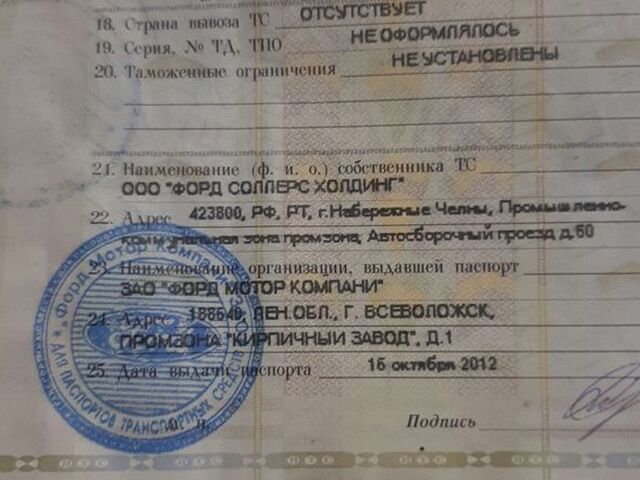 18. Страна вывоза ТС ОТСУТСТВУЕТ
19. Серия, № ТД, ТПО НЕ ОФОРМЛЯЛОСЬ
20. Таможенные ограничения НЕ УСТАНОВЛЕНЫ
21. Наименование (ф. и. о.) собственника ТС
ООО "ФОРД СОЛЛЕРС ХОЛДИНГ"
22. Адрес 423800, РФ, РТ, г.Набережные Челны, Промышленно-
коммунальная зона промзона, Автосборочный проезд д.60
23. Наименование организации, выдавшей паспорт
ЗАО "ФОРД МОТОР КОМПАНИ"
24. Адрес 188640, ЛЕН.ОБЛ., Г. ВСЕВОЛОЖСК,
ПРОМЗОНА "КИРПИЧНЫЙ ЗАВОД", Д.1
25. Дата выдачи паспорта 16 октября 2012
М. П. Подпись
"Форд Мотор Компани" ЗАО
ДЛЯ ПАСПОРТОВ ТРАНСПОРТНЫХ СРЕДСТВ